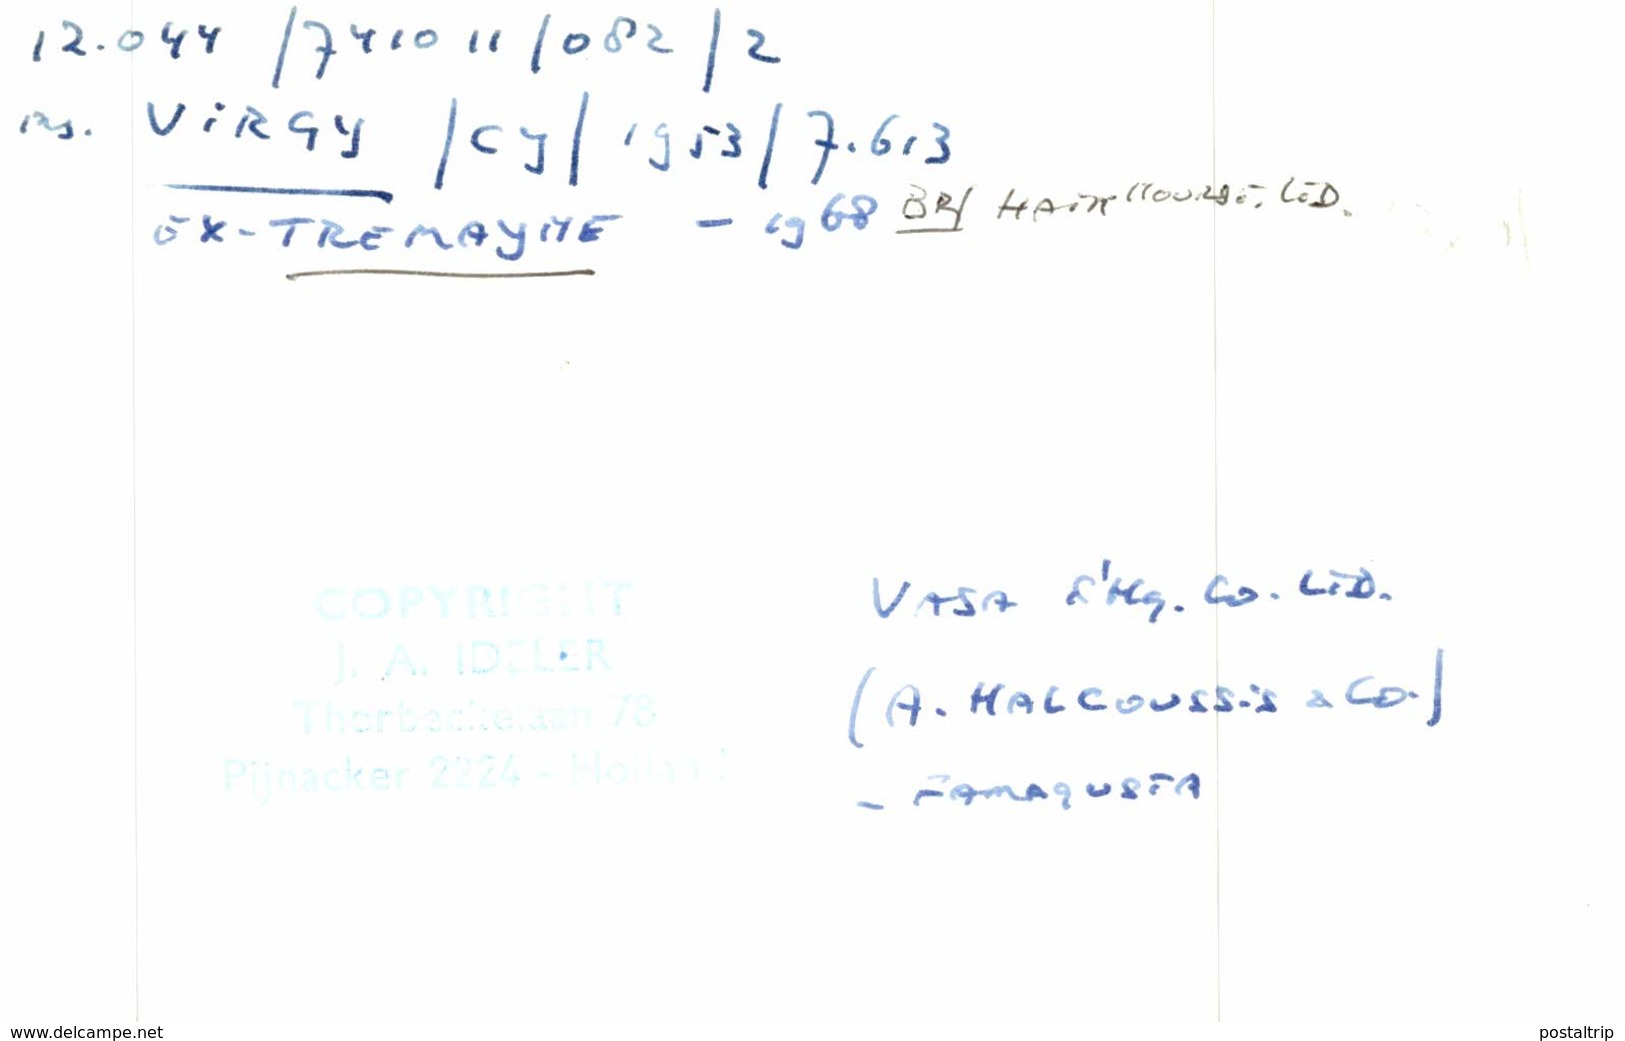 12.044 /741011/082/2
ms. VIRGY /CY/ 1953/7.613
EX-TREMAYNE - 1968 BR/ HAIN NOURSE. LTD.
VASA S'Hg. Co. LTD.
(A. HALCOUSSIS & Co.)
- FAMAGUSTA
COPYRIGHT
J. A. IDELER
Thorbeckelaan 78
Pijnacker 2224 - Holland
www.delcampe.net
postaltrip